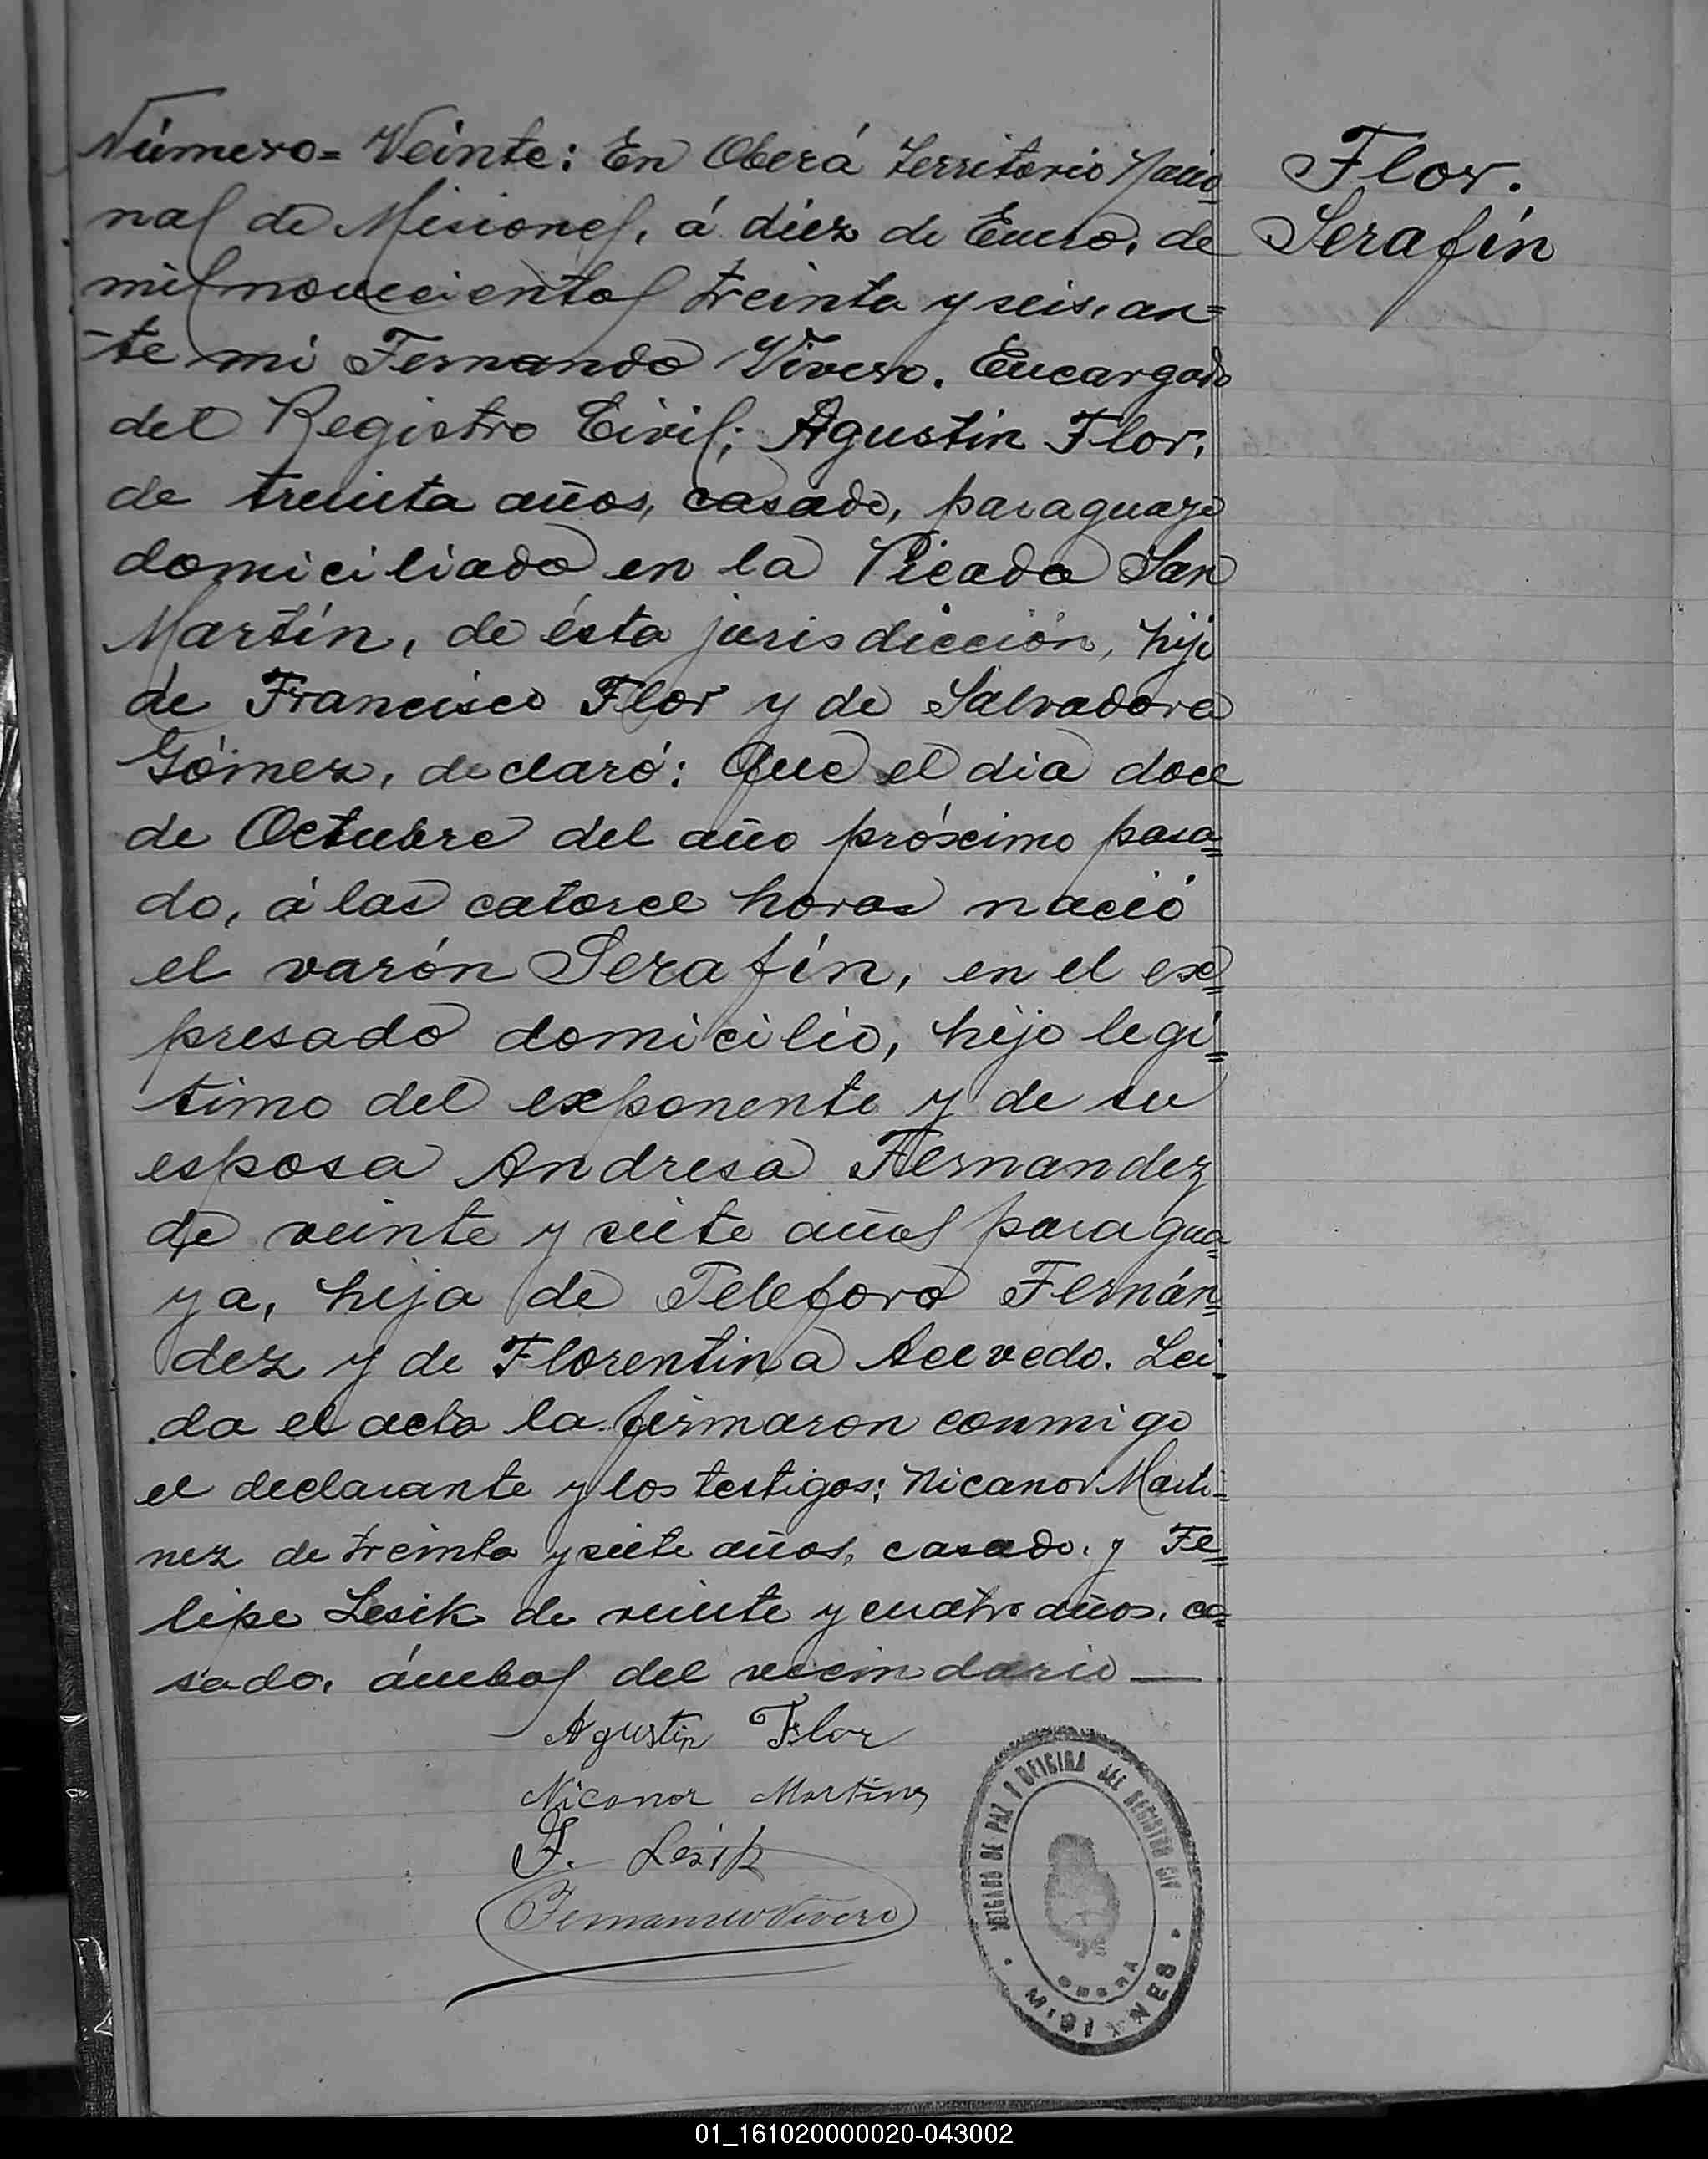 Número= Veinte: En Oberá Territorio Nacio
nal de Misiones, á diez de Enero, de
mil novecientos treinta y seis, an=
-te mi Fernando Vivero. Encargado
del Registro Civil; Agustin Flor,
de treinta años, casado, paraguayo
domiciliado en la Picada San
Martín, de ésta jurisdicción, hijo
de Francisco Flor y de Salvadora
Gómez, declaró: Que el dia doce
de Octubre del año próximo pasa=
do, á las catorce horas nació
el varón Serafín, en el ex=
presado domicilio, hijo legí=
timo del exponente y de su
esposa Andresa Fernandez
de veinte y siete años paragua=
ya, hija de Teleforo Fernán=
dez y de Florentina Acevedo. Lei-
da el acta la firmaron conmigo
el declarante y los testigos: Nicanor Marti=
nez de treinta y siete años, casado. y Fe=
lipe Lesik de veinte y cuatro años. ca=
sado. ámbos del vecindario —
Flor.
Serafín
Agustin Flor
Nicanor Martinez
F. Lesik
Fernando Vivero
JUZGADO DE PAZ Y OFICINA DEL REGISTRO CIV
OBERÁ
MISIONES
01_161020000020-043002